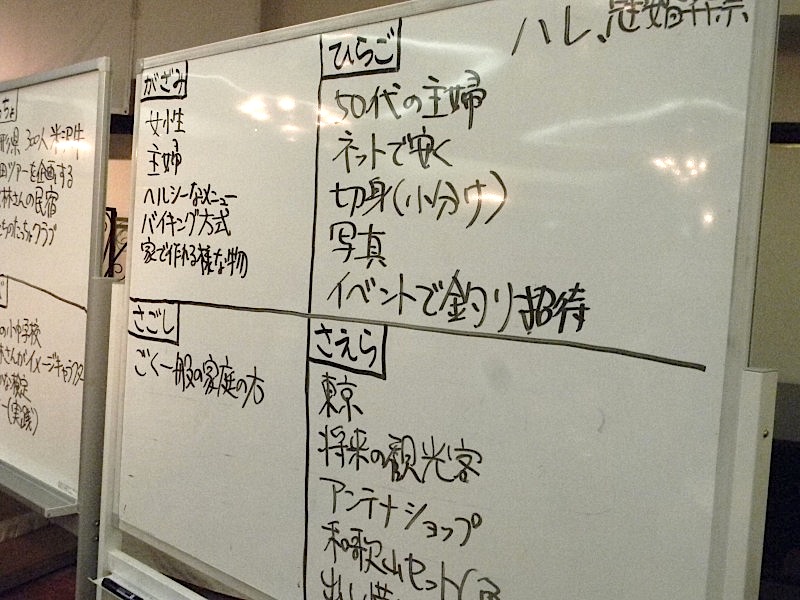 形県 300人
田ツアーを企画する
林さんの民宿
の小中学校
さんがイメージキャラクター
検定
(実践)
がざみ
女性
主婦
ヘルシーなメニュー
バイキング方式
家で作れる様な物
ハレ、冠婚葬祭
ひらご
50代の主婦
ネットで安く
切身(小分け)
写真
イベントで釣り招待
さごし
ごく一般の家庭の方
さえら
東京
将来の観光客
アンテナショップ
和歌山セット(